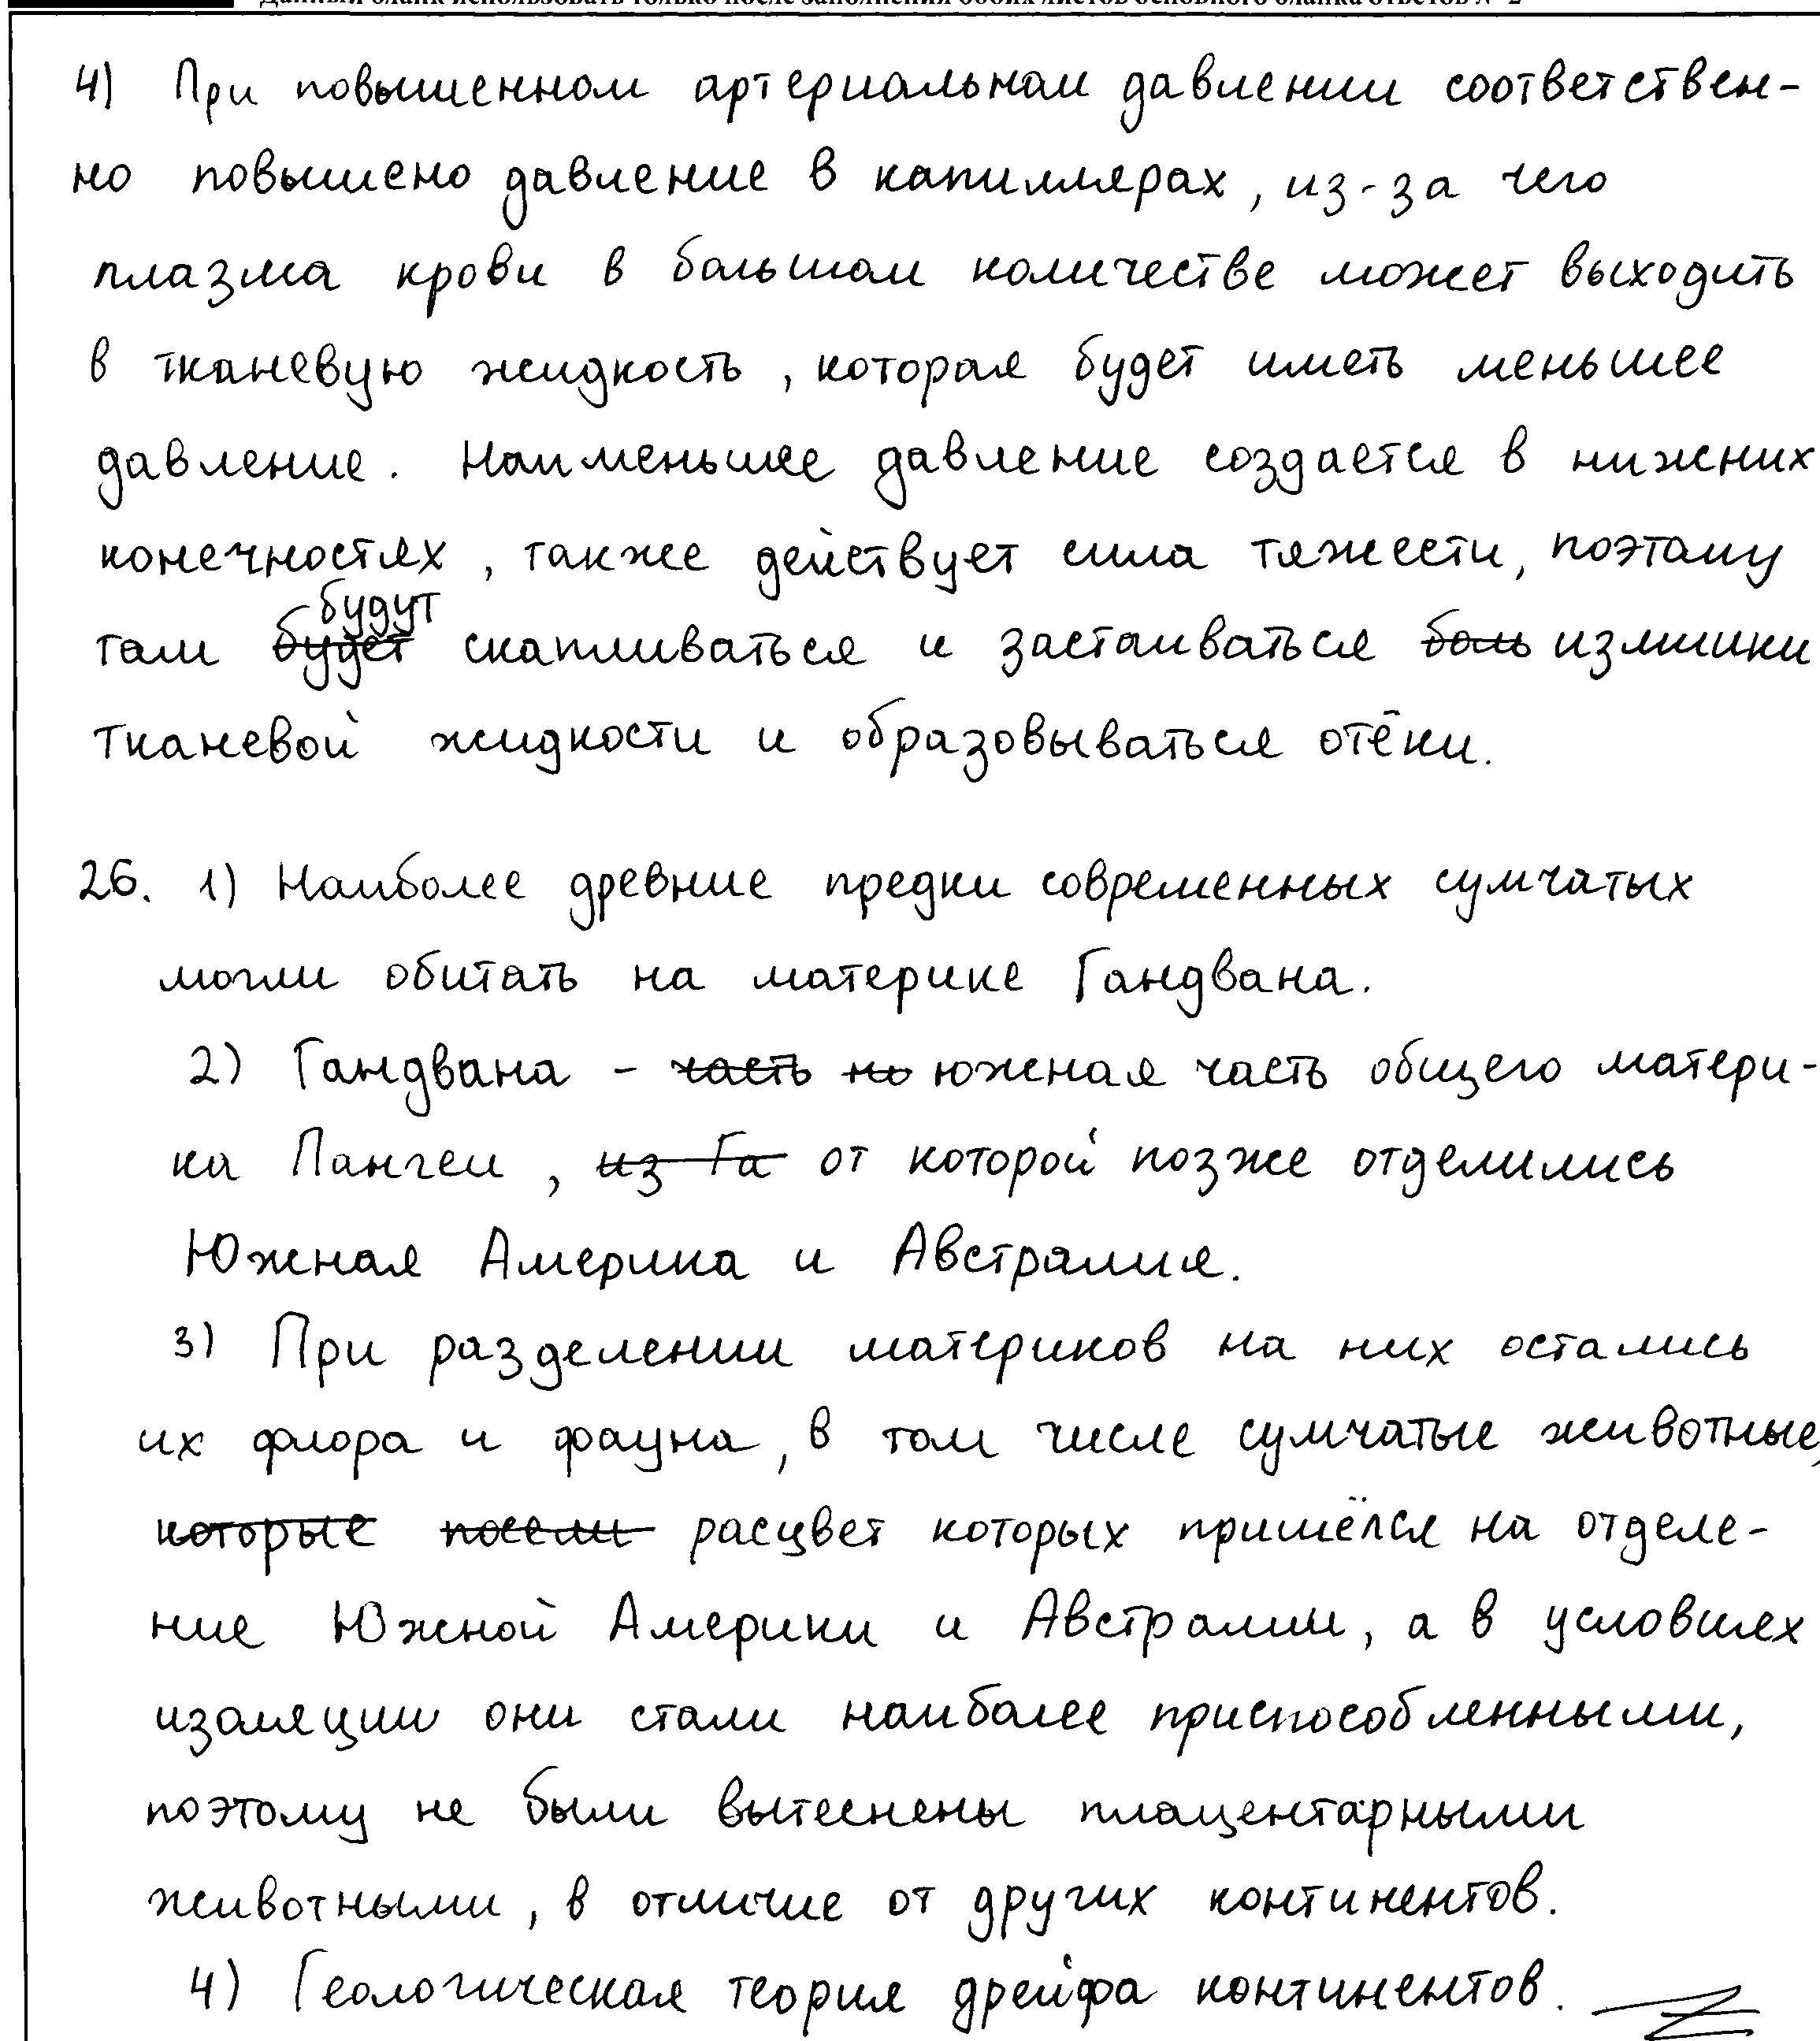 Данный бланк использовать только после заполнения обоих листов основного бланка ответов № 2
4) При повышенном артериальном давлении соответствен-
но повышено давление в капиллярах, из-за чего
плазма крови в большом количестве может выходить
в тканевую жидкость, которая будет иметь меньшее
давление. Наименьшее давление создается в нижних
конечностях, также действует сила тяжести, поэтому
будут
там будет скапливаться и застаиваться боль излишки
тканевой жидкости и образовываться отёки.
26. 1) Наиболее древние предки современных сумчатых
могли обитать на материке Гандвана.
2) Гандвана - часть но южная часть общего матери-
ка Пангеи, из Га от которой позже отделились
Южная Америка и Австралия.
3) При разделении материков на них остались
их флора и фауна, в том числе сумчатые животные,
которые посели расцвет которых пришёлся на отделе-
ние Южной Америки и Австралии, а в условиях
изоляции они стали наиболее приспособленными,
поэтому не были вытеснены плацентарными
животными, в отличие от других континентов.
4) Геологическая теория дрейфа континентов.